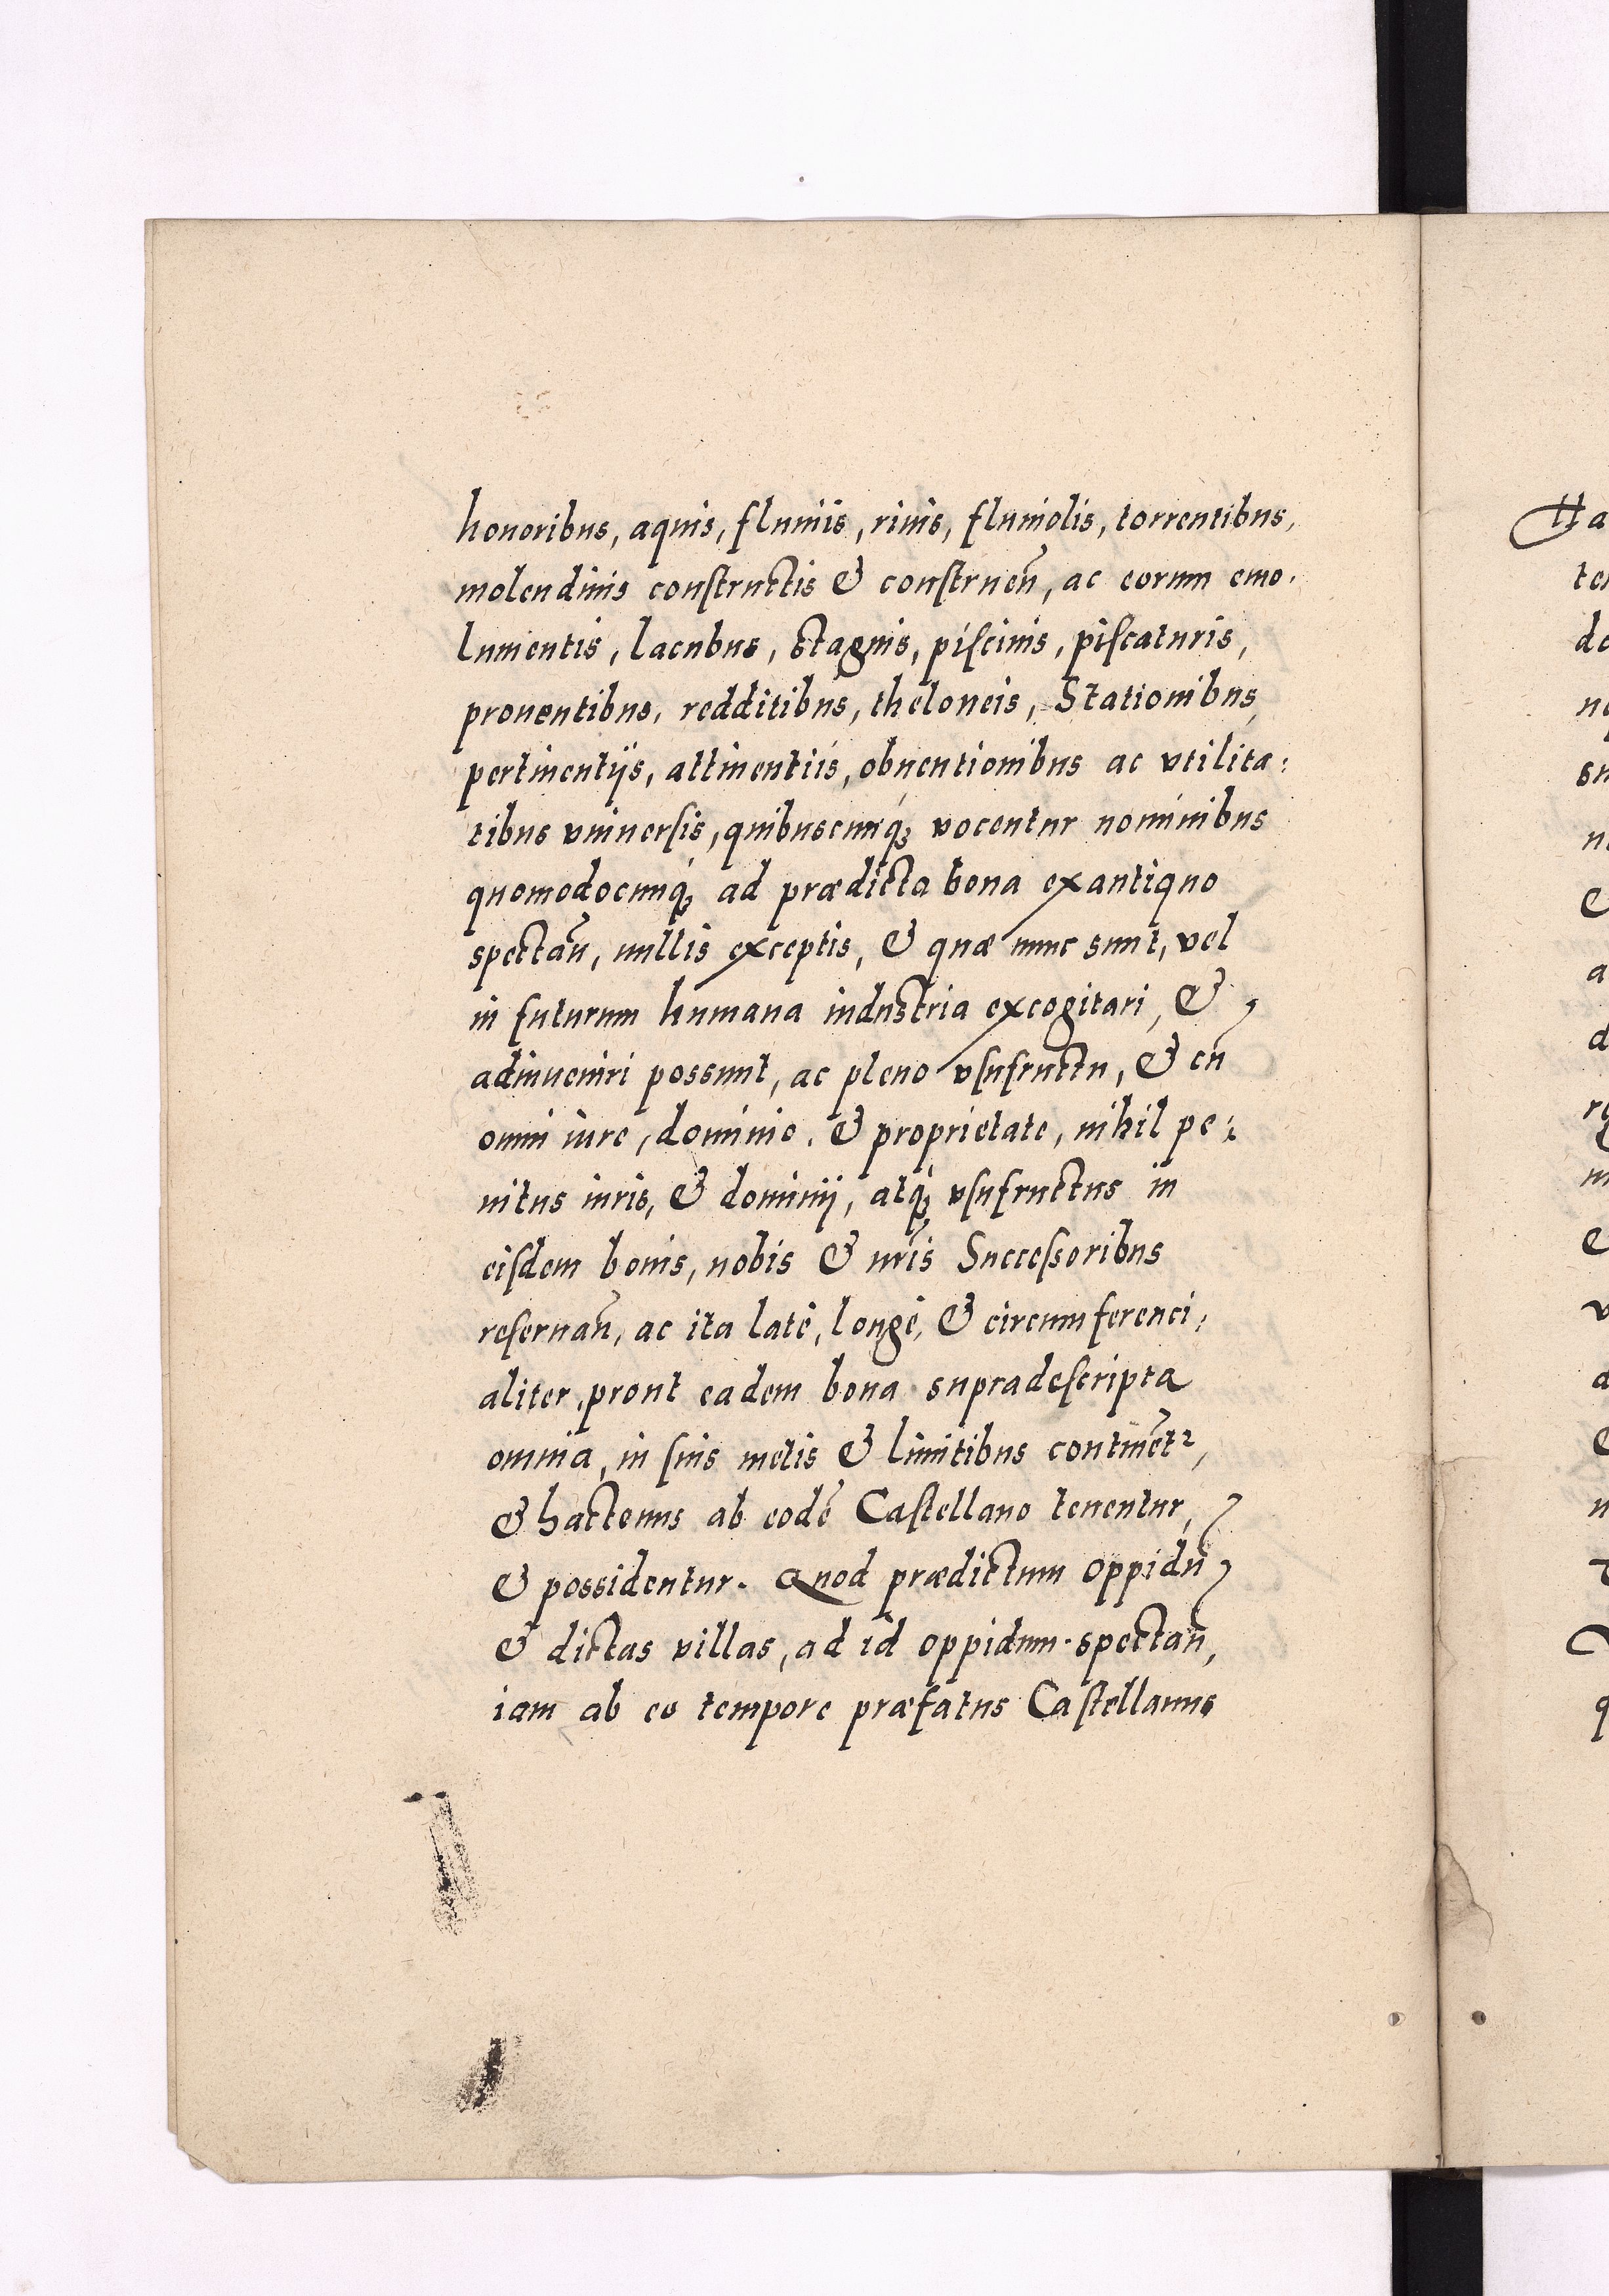 honoribus, aquis, fluuiis, riuis, fluuiolis, torrentibus,
molendinis constructis & construeñ, ac eorum emo-
lumentis, lacubus, stagnis, piscinis, piscaturis,
prouentibus, redditibus, theloneis, Stationibus,
pertinentijs, attinentiis, obuentionibus ac vtilita:
tibus vniuersis, quibuscunq́ꝫ vocentur nominibus
quomodocunq́ꝫ ad prædicta bona ex antiquo
spectañ, nullis exceptis, & quæ nunc sunt, vel
in futurum humana industria excogitari, &
adinueniri possunt, ac pleno vsufructu, & cũ
omni iure, dominio, & proprietate, nihil pe:
nitus iuris, & dominij, atq́ꝫ vsufructus in
eisdem bonis, nobis & nr̃is Successoribus
reseruañ, ac ita latè, longè, & circumferenci:
aliter, prout eadem bona supradescripta
omnia, in suis metis & limitibus continẽtᷣ,
& hactenus ab eodẽ Castellano tenentur,
& possidentur. Quod prædictum oppidũ
& dictas villas, ad id oppidum spectañ,
iam ab eo tempore præfatus Castellanus